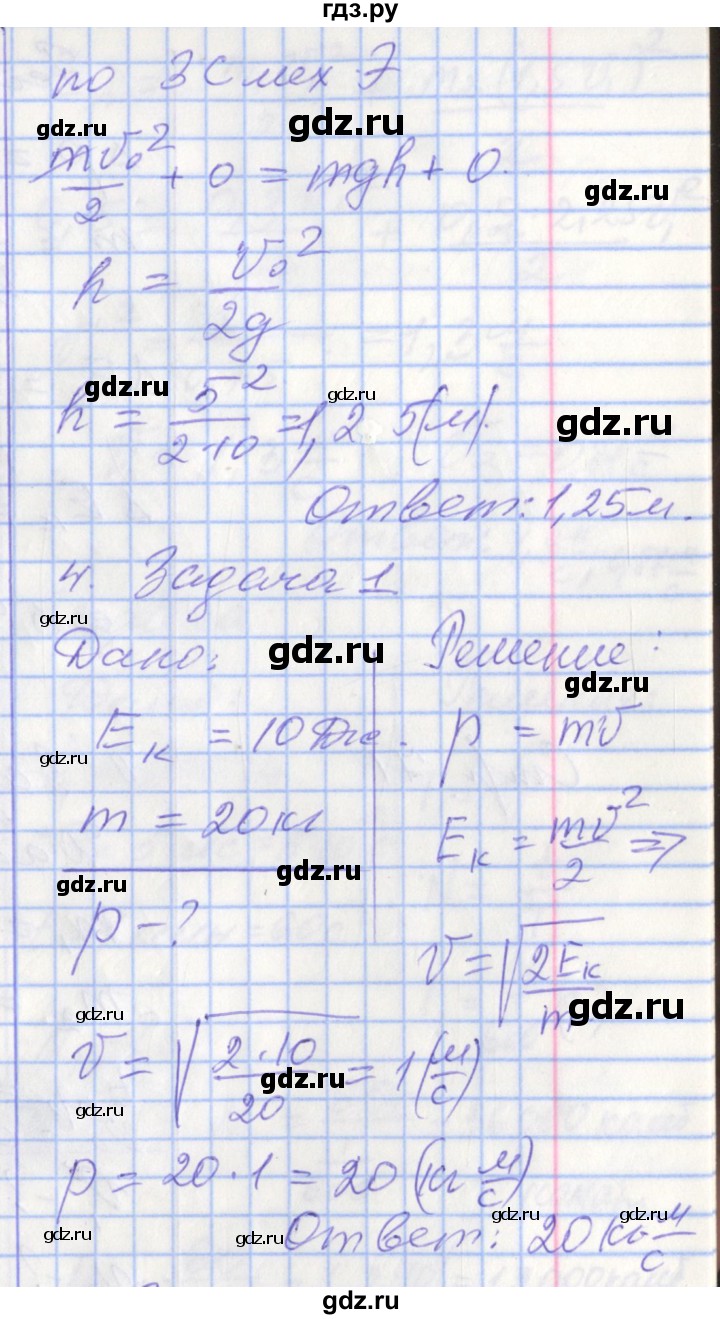 гдз.ру
по ЗСмех Э
gdz.ru gdz.ru
mv₀²/2 + 0 = mgh + 0.
gdz.ru
h = v₀²/2g
gdz.ru gdz.ru
h = 5²/2·10 = 1,25(м).
gdz.ru
Ответ: 1,25м.
4. Задача 1
gdz.ru
Дано: gdz.ru Решение:
gdz.ru
Eк = 10Дж. p = mv
gdz.ru
m = 20кг Eк = mv²/2 ⇒
gdz.ru gdz.ru
p - ?
v = √(2Eк/m)
gdz.ru gdz.ru
v = √(2·10/20) = 1(м/с)
gdz.ru
gdz.ru
p = 20·1 = 20(кг м/с)
gdz.ru gdz.ru gdz.ru gdz.ru
Ответ: 20кг м/с
gdz.ru